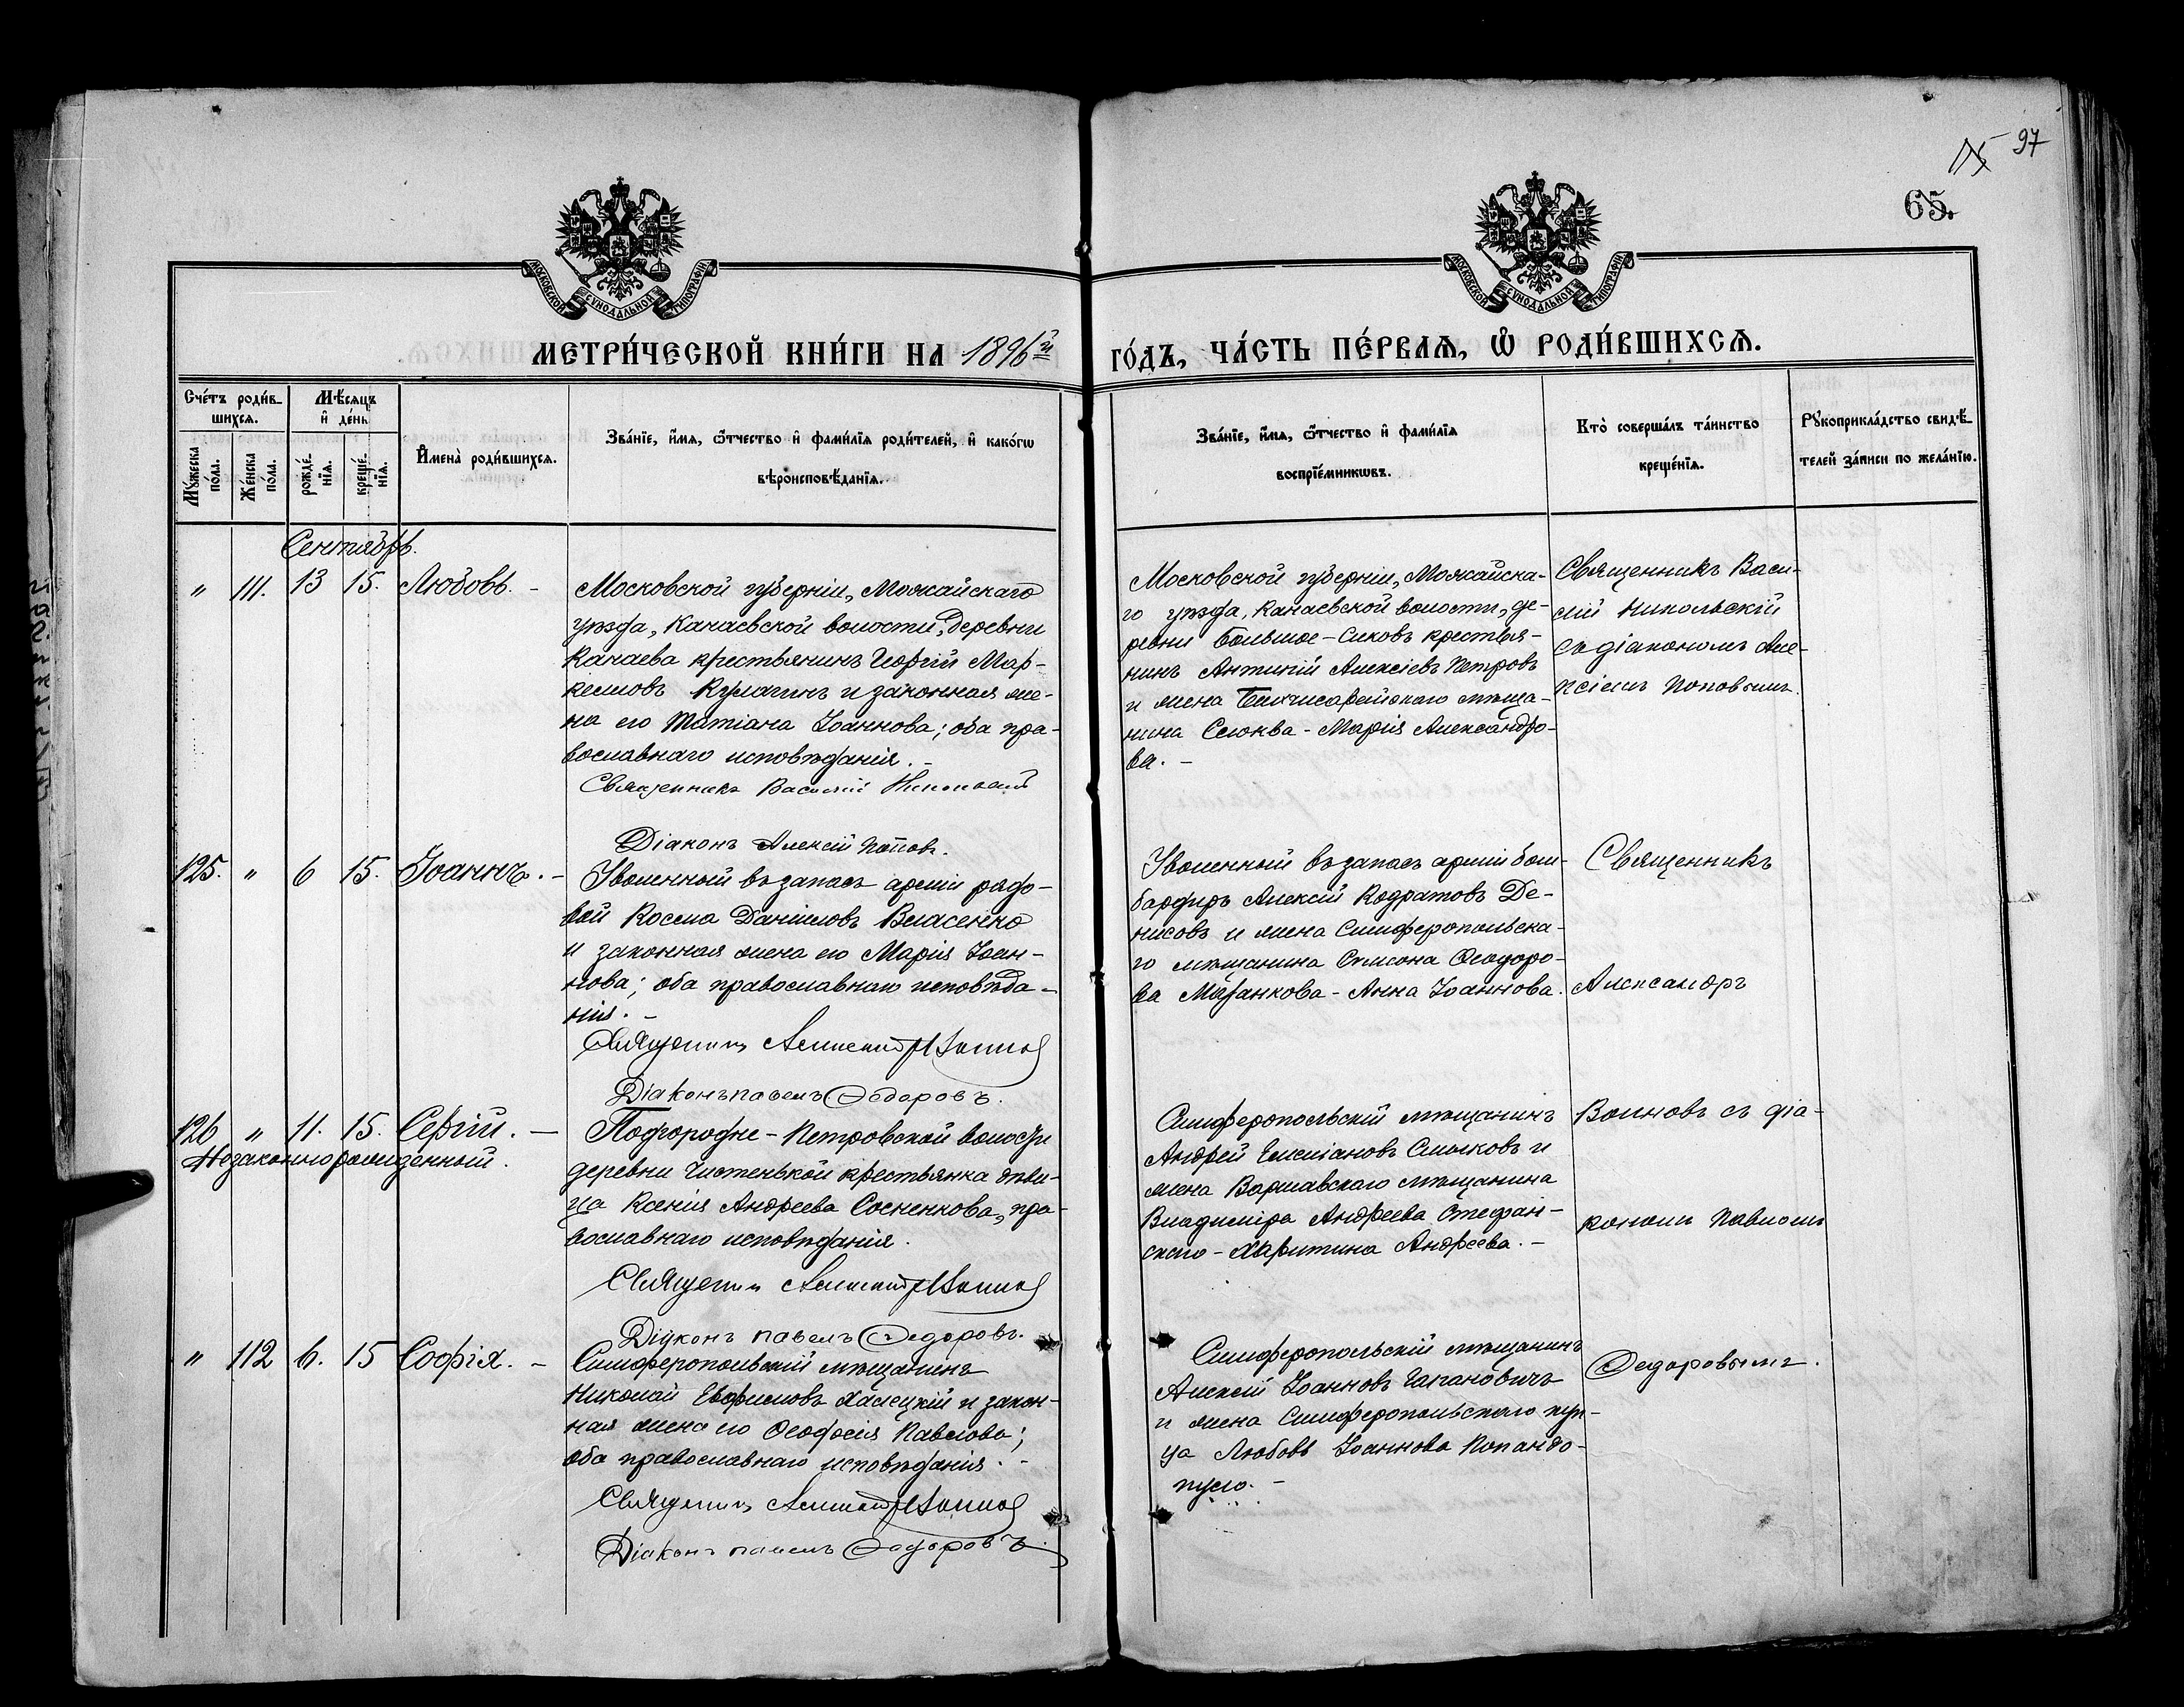 97
65.
МОСКОВСКОЙ СѴНОДАЛЬНОЙ ТИПОГРАФІИ
МОСКОВСКОЙ СѴНОДАЛЬНОЙ ТИПОГРАФІИ
МЕТРИ́ЧЕСКОЙ КНИ́ГИ НА 1896й
ГО́ДЪ, ЧА́СТЬ ПЕ́РВАѦ, Ѡ҆ РОДИ́ВШИХСѦ.
Сче́тъ роди́в-
шихсѧ.
Мꙋ́жеска по́ла.
Же́нска по́ла.
Мѣ́сѧцъ
и҆ де́нь
рожде́-нїѧ.
креще́-нїѧ.
И҆мена̀ роди́вшихсѧ.
Зва́нїе, и҆́мѧ, ѻ҆́тчество и҆ фами́лїѧ роди́телей, и҆ како́гѡ
вѣроисповѣ́данїѧ.
Зва́нїе, и҆́мѧ, ѻ҆́тчество и҆ фами́лїѧ
воспрїе́мникѡвъ.
Кто̀ соверша́лъ та́инство
креще́нїѧ.
Рꙋкоприкла́дство свидѣ́-
телей за́писи по жела́нїю.
Сентябрь.
" 111. 13 15. Любовь. -
Московской губерніи, Можайскаго
уѣзда, Канаевской волости, деревни
Канаева крестьянинъ Георгій Мар-
келловъ Кулагинъ и законная же-
на его Татіана Іоаннова; оба пра-
вославнаго исповѣданія. -
Священникъ Василій Никольскій
Діаконъ Алексій Поповъ.
Московской губерніи, Можайска-
го уѣзда, Канаевской волости, де-
ревни Большое-Сиковъ крестья-
нинъ Алексіевъ Петровъ
и жена Бахчисарайскаго мѣща-
нина - Марія Александро-
ва. -
Священникъ Васи-
лій Никольскій
съ діакономъ Але-
ксіемъ Поповымъ.
125. " 6 15. Іоаннъ. -
Уволенный въ запасъ арміи рядо-
вой Косма Даніиловъ Власенко
и законная жена его Марія Іоан-
нова; оба православнаго исповѣда-
нія. -
Священникъ Александръ Воиновъ
Діаконъ Павелъ Ѳедоровъ.
Уволенный въ запасъ арміи бом-
бардиръ Алексій Кодратовъ Де-
нисовъ и жена Симферопольска-
го мѣщанина Симона Ѳеодоро-
ва Маганкова - Анна Іоаннова.
Священникъ
Александръ
126 " 11. 15. Сергій. -
Незаконнорожденный.
Подгородне-Петровской волости
деревни Чистенькой крестьянка дѣви-
ца Ксенія Андреева Сосненкова, пра-
вославнаго исповѣданія.
Священникъ Александръ Воиновъ
Діаконъ Павелъ Ѳедоровъ.
Симферопольскій мѣщанинъ
Андрей Емиліановъ Смыковъ и
жена Варшавскаго мѣщанина
Владиміра Андреева Стефан-
скаго - Харитина Андреева. -
Воиновъ съ діа-
кономъ Павломъ
" 112 6. 15 Софія. -
Симферопольскій мѣщанинъ
Николай Евфимовъ Халецкій и закон-
ная жена его Ѳеодосія Павлова;
оба православнаго исповѣданія. -
Священникъ Александръ Воиновъ
Діаконъ Павелъ Ѳедоровъ.
Симферопольскій мѣщанинъ
Алексій Іоанновъ Гапановичъ
и жена Симферопольскаго куп-
ца Любовь Іоаннова Попандо-
пуло. -
Ѳедоровымъ.